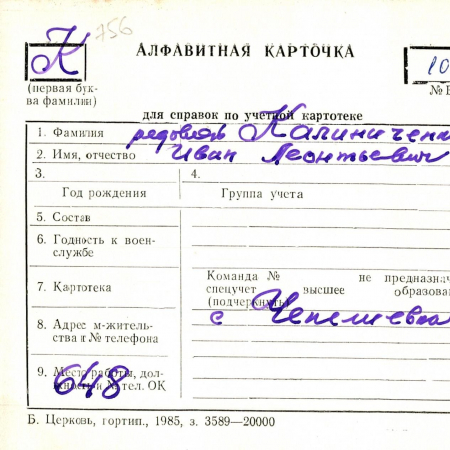 К 756
АЛФАВИТНАЯ КАРТОЧКА
10
(первая бук-
ва фамилии)
№
для справок по учетной картотеке
1. Фамилия рядовой Калиниченк
2. Имя, отчество Иван Леонтьевич
3.
4.
Год рождения
Группа учета
5. Состав
6. Годность к воен-
службе
Команда № не предназнач
7. Картотека
спецучет высшее образова
(подчеркнуть)
8. Адрес м-житель-
ства и № телефона
с
9. Место работы, дол-
жность и № тел. ОК
648
Б. Церковь, гортип., 1985, з. 3589—20000